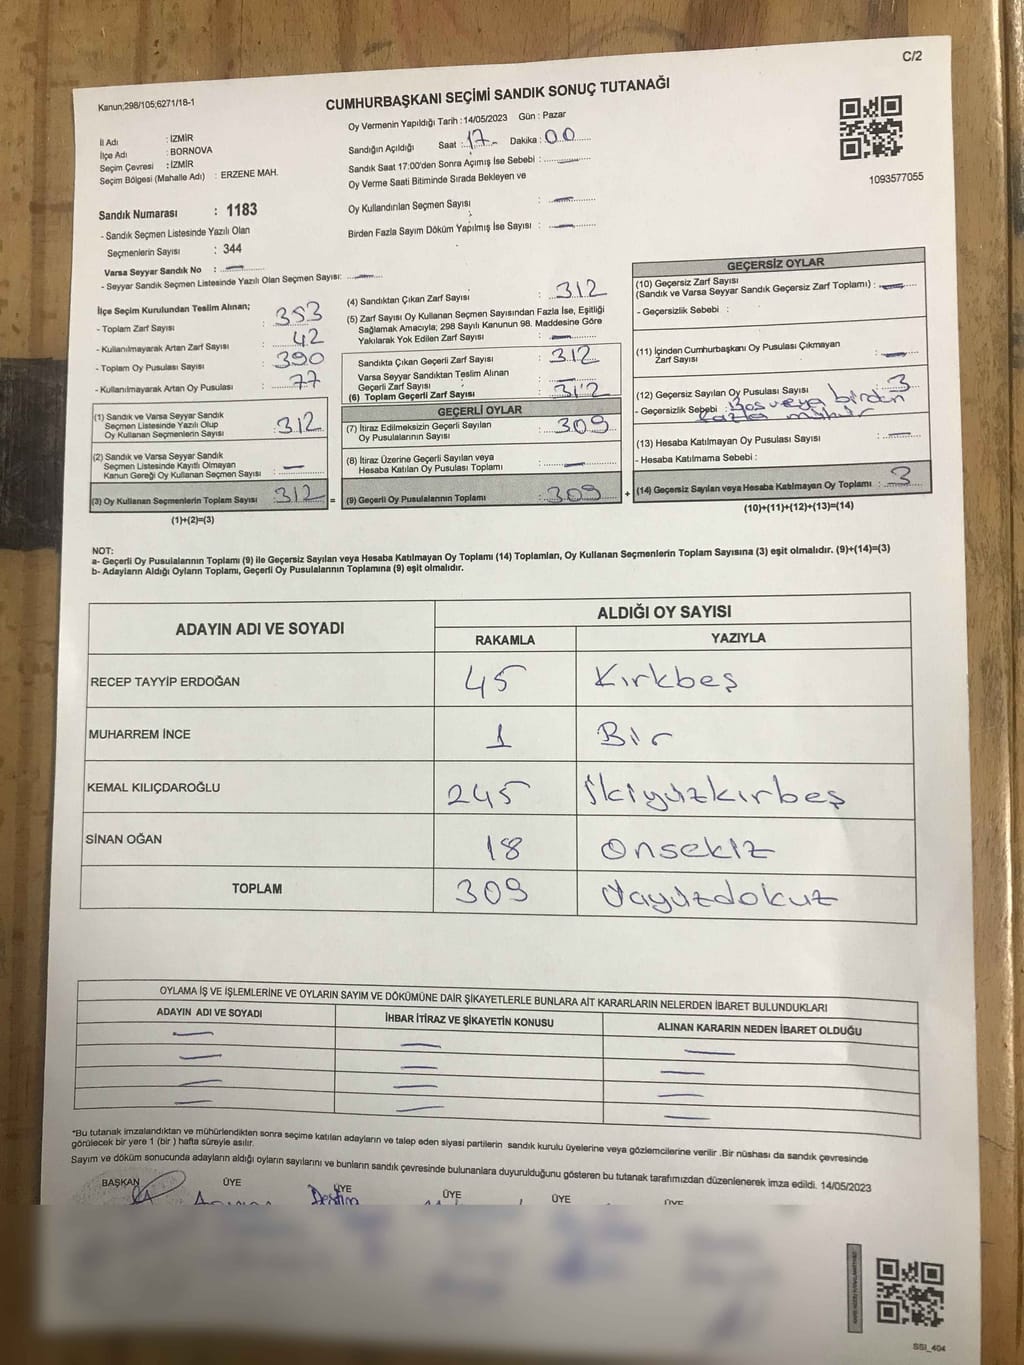 C/2
Kanun;298/105;6271/18-1
CUMHURBAŞKANI SEÇİMİ SANDIK SONUÇ TUTANAĞI
İl Adı : İZMİR
İlçe Adı : BORNOVA
Seçim Çevresi : İZMİR
Seçim Bölgesi (Mahalle Adı) : ERZENE MAH.
Sandık Numarası : 1183
- Sandık Seçmen Listesinde Yazılı Olan
Seçmenlerin Sayısı : 344
Varsa Seyyar Sandık No : —
- Seyyar Sandık Seçmen Listesinde Yazılı Olan Seçmen Sayısı: —
Oy Vermenin Yapıldığı Tarih : 14/05/2023 Gün : Pazar
Sandığın Açıldığı Saat : 17 Dakika : 00
Sandık Saat 17:00'den Sonra Açımış İse Sebebi : —
Oy Verme Saati Bitiminde Sırada Bekleyen ve
Oy Kullandırılan Seçmen Sayısı : —
Birden Fazla Sayım Döküm Yapılmış İse Sayısı : —
1093577055
İlçe Seçim Kurulundan Teslim Alınan;
- Toplam Zarf Sayısı : 353
- Kullanılmayarak Artan Zarf Sayısı : 42
- Toplam Oy Pusulası Sayısı : 390
- Kullanılmayarak Artan Oy Pusulası : 77
(1) Sandık ve Varsa Seyyar Sandık
Seçmen Listesinde Yazılı Olup
Oy Kullanan Seçmenlerin Sayısı : 312
(2) Sandık ve Varsa Seyyar Sandık
Seçmen Listesinde Kayıtlı Olmayan
Kanun Gereği Oy Kullanan Seçmen Sayısı : —
(3) Oy Kullanan Seçmenlerin Toplam Sayısı : 312 =
(1)+(2)=(3)
(4) Sandıktan Çıkan Zarf Sayısı : 312
(5) Zarf Sayısı Oy Kullanan Seçmen Sayısından Fazla İse, Eşitliği
Sağlamak Amacıyla; 298 Sayılı Kanunun 98. Maddesine Göre
Yakılarak Yok Edilen Zarf Sayısı : —
Sandıkta Çıkan Geçerli Zarf Sayısı : 312
Varsa Seyyar Sandıktan Teslim Alınan
Geçerli Zarf Sayısı : —
(6) Toplam Geçerli Zarf Sayısı : 312
GEÇERLİ OYLAR
(7) İtiraz Edilmeksizin Geçerli Sayılan
Oy Pusulalarının Sayısı : 309
(8) İtiraz Üzerine Geçerli Sayılan veya
Hesaba Katılan Oy Pusulası Toplamı : —
(9) Geçerli Oy Pusulalarının Toplamı : 309 +
GEÇERSİZ OYLAR
(10) Geçersiz Zarf Sayısı
(Sandık ve Varsa Seyyar Sandık Geçersiz Zarf Toplamı) : —
- Geçersizlik Sebebi :
(11) İçinden Cumhurbaşkanı Oy Pusulası Çıkmayan
Zarf Sayısı : —
(12) Geçersiz Sayılan Oy Pusulası Sayısı : 3
- Geçersizlik Sebebi : Boş veya birden
fazla mühür
(13) Hesaba Katılmayan Oy Pusulası Sayısı : —
- Hesaba Katılmama Sebebi :
(14) Geçersiz Sayılan veya Hesaba Katılmayan Oy Toplamı : 3
(10)+(11)+(12)+(13)=(14)
NOT:
a- Geçerli Oy Pusulalarının Toplamı (9) ile Geçersiz Sayılan veya Hesaba Katılmayan Oy Toplamı (14) Toplamları, Oy Kullanan Seçmenlerin Toplam Sayısına (3) eşit olmalıdır. (9)+(14)=(3)
b- Adayların Aldığı Oyların Toplamı, Geçerli Oy Pusulalarının Toplamına (9) eşit olmalıdır.
ADAYIN ADI VE SOYADI
ALDIĞI OY SAYISI
RAKAMLA YAZIYLA
RECEP TAYYİP ERDOĞAN 45 Kırkbeş
MUHARREM İNCE 1 Bir
KEMAL KILIÇDAROĞLU 245 İkiyüzkırbeş
SİNAN OĞAN 18 Onsekiz
TOPLAM 309 üçyüzdokuz
OYLAMA İŞ VE İŞLEMLERİNE VE OYLARIN SAYIM VE DÖKÜMÜNE DAİR ŞİKAYETLERLE BUNLARA AİT KARARLARIN NELERDEN İBARET BULUNDUKLARI
ADAYIN ADI VE SOYADI İHBAR İTİRAZ VE ŞİKAYETİN KONUSU ALINAN KARARIN NEDEN İBARET OLDUĞU
— — —
— — —
— — —
— — —
*Bu tutanak imzalandıktan ve mühürlendikten sonra seçime katılan adayların ve talep eden siyasi partilerin sandık kurulu üyelerine veya gözlemcilerine verilir .Bir nüshası da sandık çevresinde
görülecek bir yere 1 (bir ) hafta süreyle asılır.
Sayım ve döküm sonucunda adayların aldığı oyların sayılarını ve bunların sandık çevresinde bulunanlara duyurulduğunu gösteren bu tutanak tarafımızdan düzenlenerek imza edildi. 14/05/2023
BAŞKAN ÜYE ÜYE ÜYE ÜYE ÜYE
SSI_404